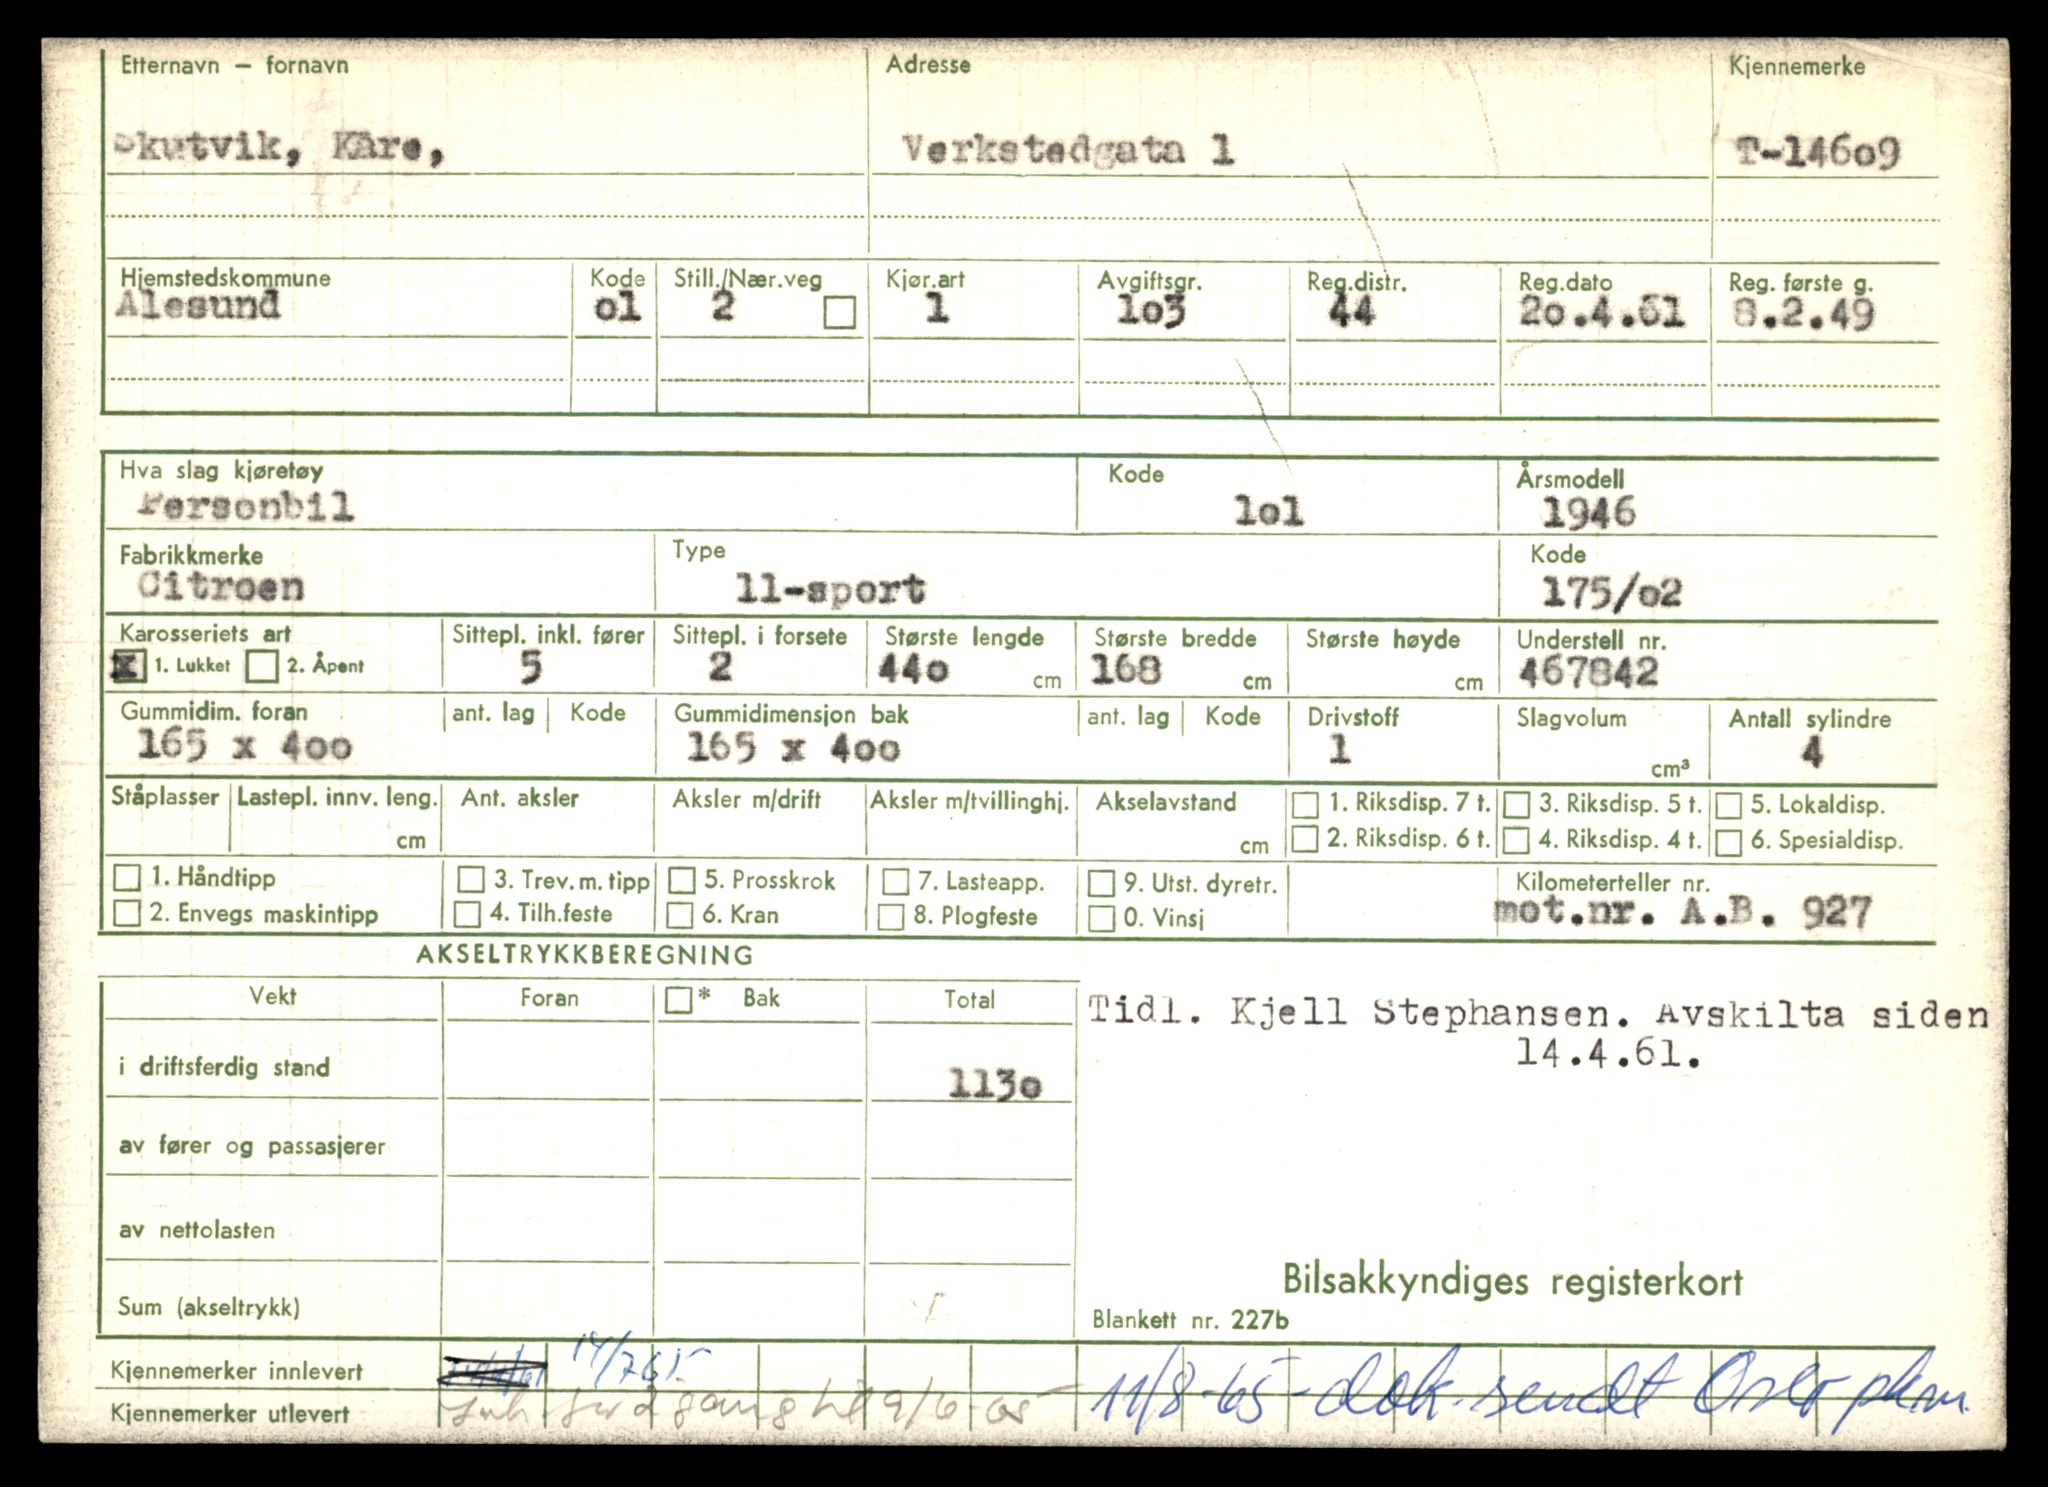 Etternavn – fornavn Adresse Kjennemerke
Skutvik, Kåre, Verkstedgata 1 T-14609
Hjemstedskommune Kode Still./Nær.veg Kjør.art Avgiftsgr. Reg.distr. Reg.dato Reg. første g.
Ålesund o1 2 1 1o3 44 2o.4.61 8.2.49
Hva slag kjøretøy Kode Årsmodell
Personbil 1o1 1946
Fabrikkmerke Type Kode
Citroen 11-sport 175/o2
Karosseriets art Sittepl. inkl. fører Sittepl. i forsete Største lengde Største bredde Største høyde Understell nr.
x 1. Lukket 2. Åpent 5 2 44o cm 168 cm cm 467842
Gummidim. foran ant. lag Kode Gummidimensjon bak ant. lag Kode Drivstoff Slagvolum Antall sylindre
165 x 4oo 165 x 4oo 1 cm³ 4
Ståplasser Lastepl. innv. leng. Ant. aksler Aksler m/drift Aksler m/tvillinghj. Akselavstand 1. Riksdisp. 7 t. 3. Riksdisp. 5 t. 5. Lokaldisp.
cm cm 2. Riksdisp. 6 t. 4. Riksdisp. 4 t. 6. Spesialdisp.
1. Håndtipp 3. Trev. m. tipp 5. Prosskrok 7. Lasteapp. 9. Utst. dyretr. Kilometerteller nr.
2. Envegs maskintipp 4. Tilh.feste 6. Kran 8. Plogfeste 0. Vinsj mot.nr. A.B. 927
AKSELTRYKKBEREGNING
Vekt Foran * Bak Total
Tidl. Kjell Stephansen. Avskilta siden
14.4.61.
i driftsferdig stand 113o
av fører og passasjerer
av nettolasten
Bilsakkyndiges registerkort
Sum (akseltrykk) Blankett nr. 227b
Kjennemerker innlevert 14/765 11/8-65-dok. sendt Oslo pkm
Kjennemerker utlevert 9/6-65